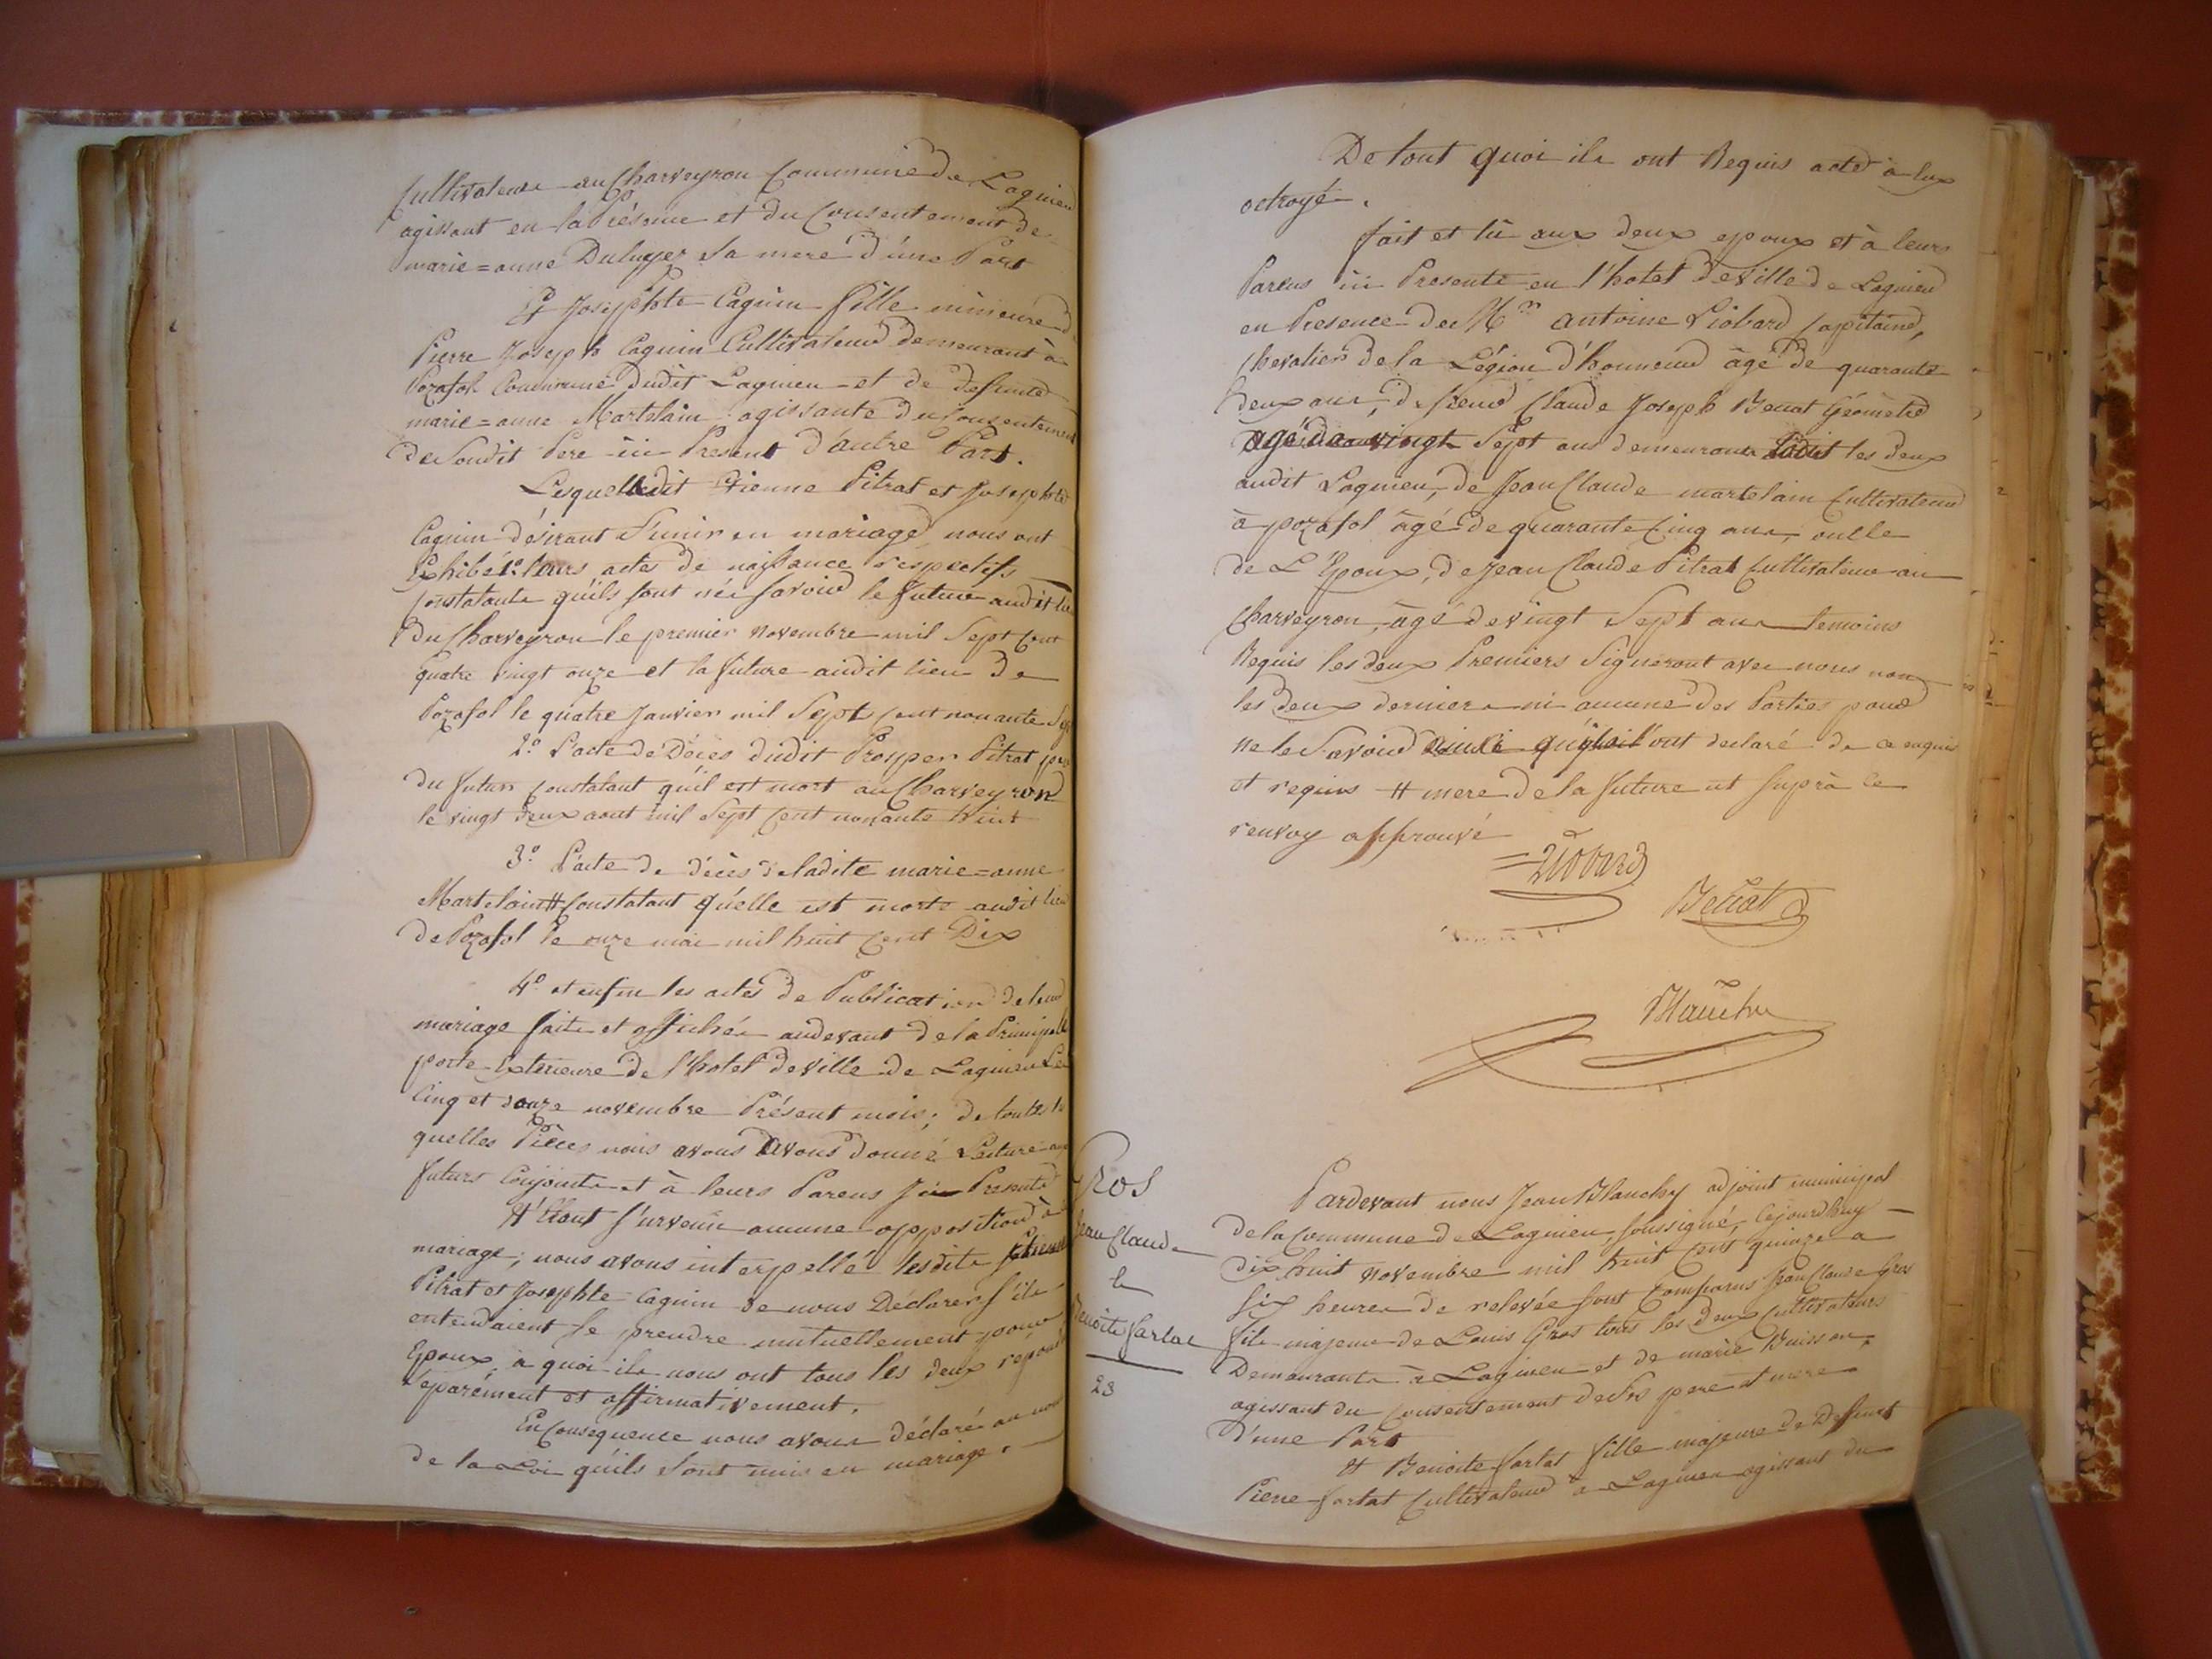 Cultivateur au Charveyron Commune de Lagnieu
agissant en la Présence et du Consentement de
marie=anne Duluyer sa mere d'une Part
Et Josephte Caguin fille mineure de
Pierre Joseph Caguin Cultivateur demeurant à
Pozafol Commune dudit Lagnieu et de defunte
marie=anne Martelain agissante du Consentement
de Soudit Pere ici Present d'autre Part.
Lesquels dit Etienne Pitrat et Josephte
Caguin désirant S'unir en mariage nous ont
Exhibé 1º. leurs actes de naissance respectifs
Constatants qu'ils sont nés savoir le futur audit lieu
du Charveyron le premier novembre mil Sept Cent
quatre vingt onze et la future audit lieu de
Pozafol le quatre Janvier mil Sept Cent nonante Sept
2º. l'acte de Décès dudit Prosper Pitrat pere
du futur Constatant qu'il est mort au Charveyron
le vingt deux aout mil Sept Cent nonante huit
3º. l'acte de décès de ladite marie=anne
Martelain # Constatant qu'elle est morte audit lieu
de Pozafol le onze mai mil huit Cent Dix
4º. et enfin les actes de Publication de leur
mariage faite et affichée audevant de la Principale
porte Exterieure de l'hotel de ville de Lagnieu Les
Cinq et douze novembre Présent mois; de toutes les
quelles Pièces nous avous avous donné Lecture aux
futurs Conjoints et à leurs Parens Ici Presents
N'étant Survenu aucune opposition à
mariage; nous avons interpellé lesdits Etienne
Pitrat et Josephte Caguin de nous Déclarer s'ils
entendaient se prendre mutuellement pour
Epoux, à quoi ils nous ont tous les deux répondu
séparément et affirmativement.
En Consequence nous avons déclaré au nom
de la Loi qu'ils sont unis en mariage.
De tout quoi ils ont Requis acte à eux
octroyé.
fait et lû aux deux epoux et à leurs
Parens ici Presents en l'hotel de ville de Lagnieu
en Presence de Mr. antoine Liobard Capitaine,
Chevalier de la Légion d'honneur âgé de quarante
deux ans, de sieur Claude Joseph Benat Géometre
agé de vingt Sept ans demeurans les deux
audit Lagnieu, de Jean Claude martelain Cultivateur
à pozafol âgé de quarante Cinq ans, oncle
de L'Epoux, de Jean Claude Pitrat Cultivateur au
Charveyron, âgé de vingt Sept ans temoins
Requis les deux Premiers Signeront avec nous non
les deux derniers ni aucune des Parties pour
ne le Savoir ainsi qu'ils l'ont declaré de ce enquis
et requis # mere de la future ut suprà le
renvoy approuvé
=Liobard
Benat
Blanchy
Gros
Jean Claude
&
Benoite Sarlat
23
Pardevant nous Jean Blanchy adjoint municipal
de la Commune de Lagnieu soussigné, Cejourdhuy
dix huit novembre mil huit Cent quinze a
six heures de relevée sont Comparus Jean Claude Gros
fils majeur de Louis Gros tous les deux Cultivateurs
Demeurants à Lagnieu et de marie Buisson,
agissant du Consentement de ses pere et mere
d'une Part
Et Benoite Sarlat fille majeure de Defunt
Pierre Sarlat Cultivateur à Lagnieu agissant du